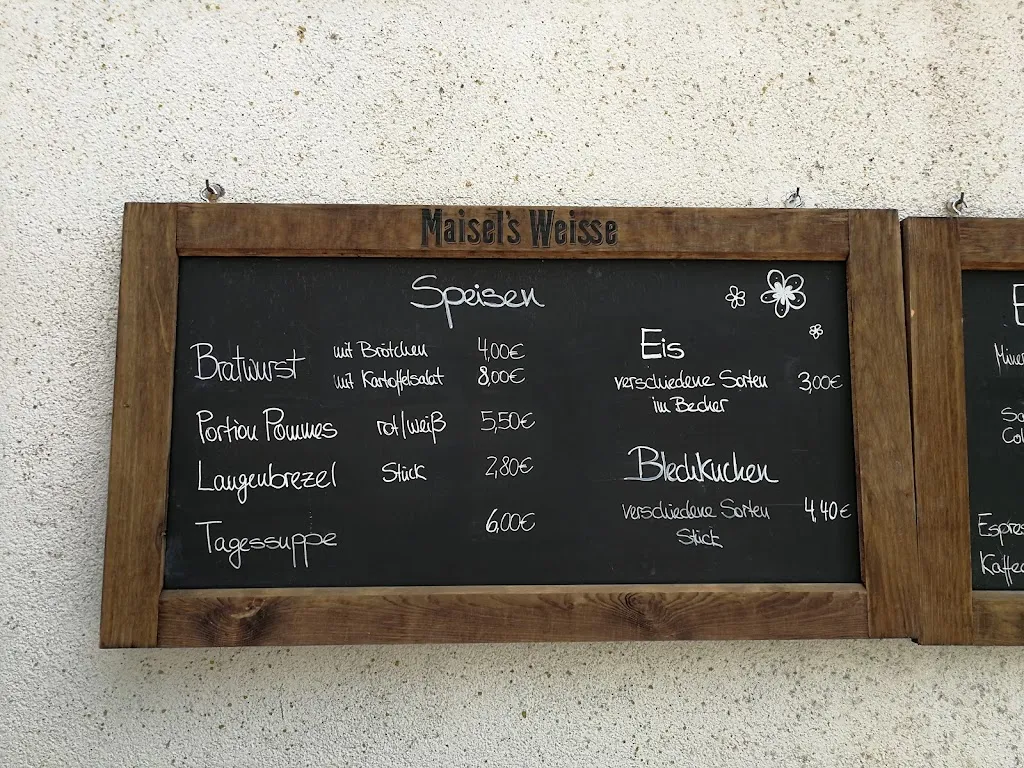 Maisel's Weisse
Speisen
Bratwurst mit Brötchen 4,00€
mit Kartoffelsalat 8,00€
Portion Pommes rot/weiß 5,50€
Laugenbrezel Stück 2,80€
Tagessuppe 6,00€
Eis
verschiedene Sorten 3,00€
im Becher
Blechkuchen
verschiedene Sorten 4,40€
Stück